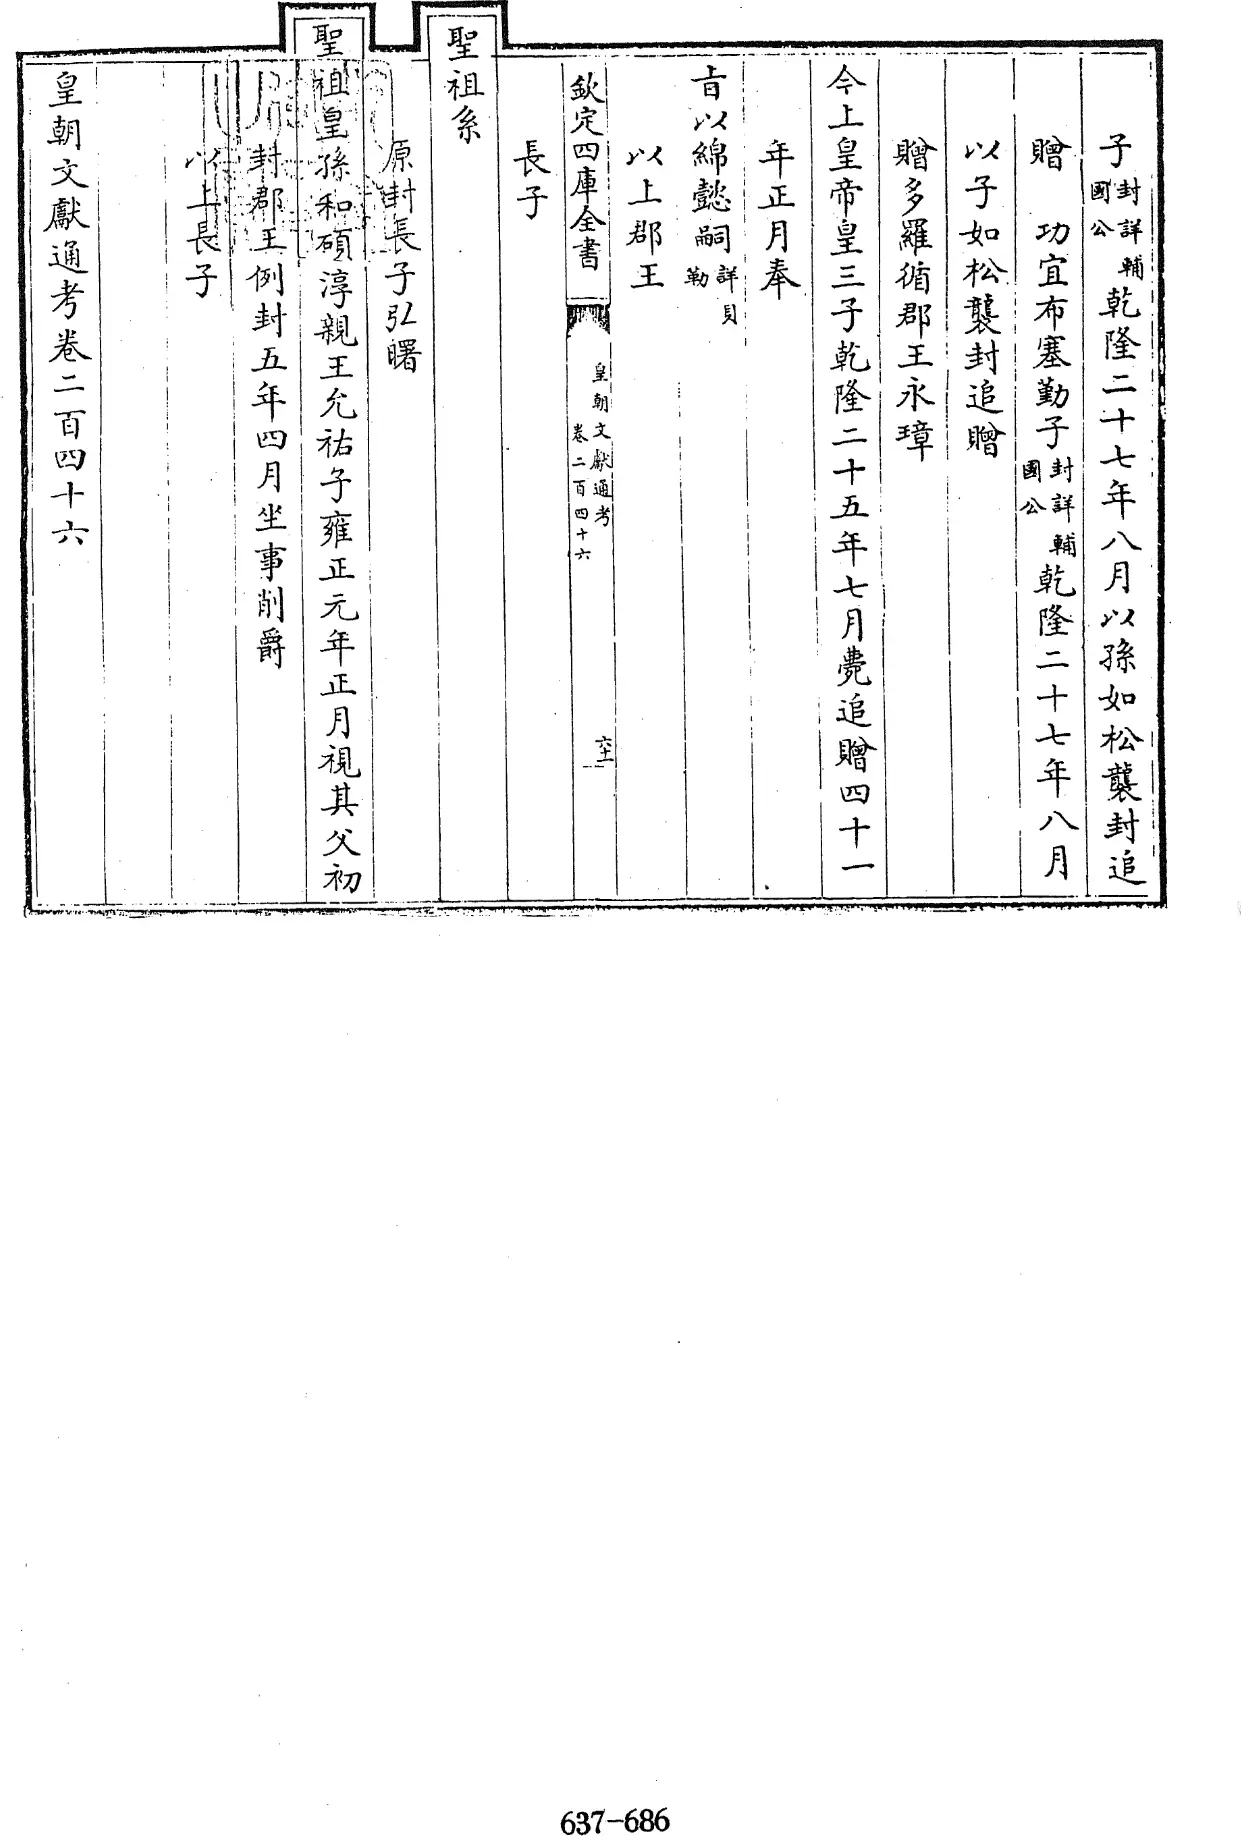 子封詳輔國公乾隆二十七年八月以孫如松襲封追
贈 功宜布塞勤子封詳輔國公乾隆二十七年八月
以子如松襲封追贈
贈多羅循郡王永璋
今上皇帝皇三子乾隆二十五年七月薨追贈四十一
年正月奉
旨以綿懿嗣詳貝勒
以上郡王
欽定四庫全書
皇朝文獻通考
卷二百四十六
六十二
長子
聖祖系
原封長子弘曙
聖祖皇孫和碩淳親王允祐子雍正元年正月視其父初
封郡王例封五年四月坐事削爵
以上長子
皇朝文獻通考卷二百四十六
637-686